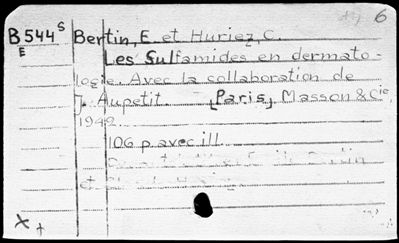 6
B544 S Bertin, E. et Huriez, C.
E
Les Sulfamides en dermato-
logie. Avec la collaboration de
J. Aupetit. [Paris], Masson & Cie,
1942
106 p. avec ill.
et